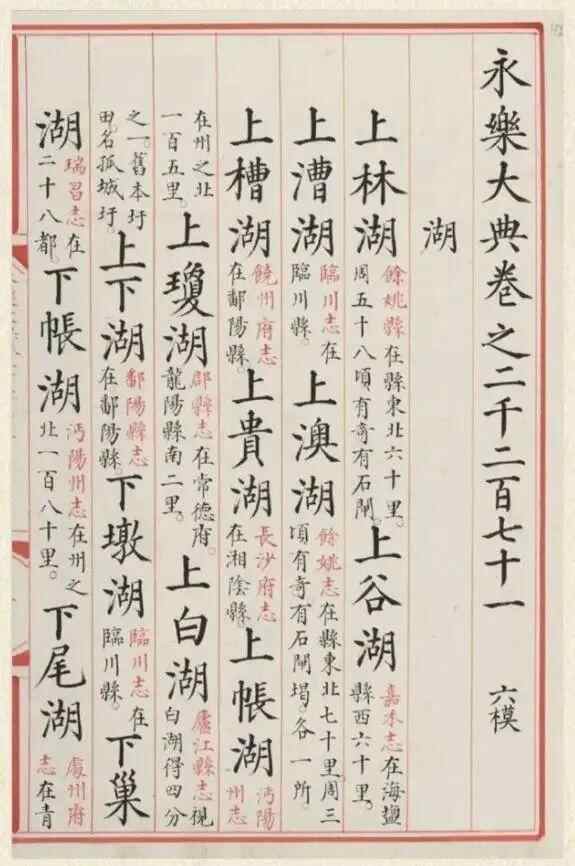 永樂大典卷之二千二百七十一 六模
湖
上林湖 餘姚縣在縣東北六十里。周五十八頃有奇有石閘。上谷湖 嘉禾志在海鹽縣西六十里。
上漕湖 臨川志在臨川縣。上澳湖 餘姚志在縣東北七十里周三頃有奇有石閘堨。各一所。
上槽湖 饒州府志在鄱陽縣。上貴湖 長沙府志在湘陰縣。上帳湖 沔陽州志
在州之北一百五里。上瓊湖 郡縣志在常德府。龍陽縣南二里。上白湖 廬江縣志視白湖得四分
之一。舊本圩田名孤城圩。上下湖 鄱陽縣志在鄱陽縣。下墩湖 臨川志在臨川縣。下巢
湖 瑞昌志在二十八都。下帳湖 沔陽州志在州之北一百八十里。下尾湖 處州府志在青